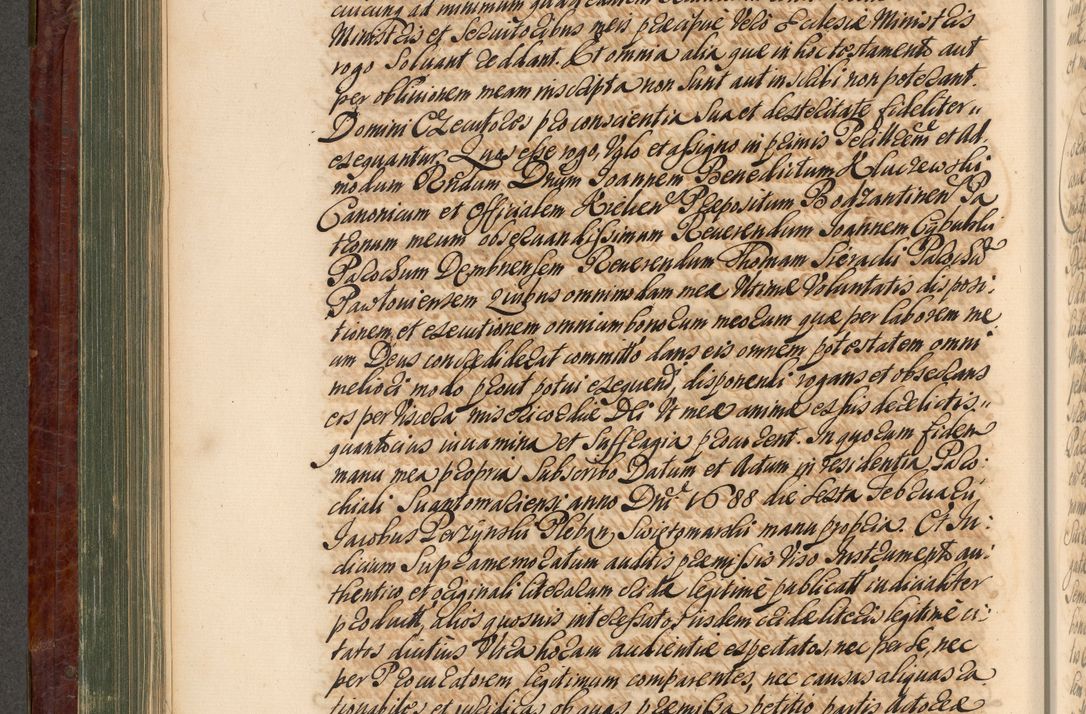 cuicunq ad minimum
Ministris et Servitoribus meis præcipue Velo Eclesiæ Ministris
rogo Solvant reddant. Et omnia alia quæ in hoc testamento aut
per oblivionem meam inscripta non sunt aut inscribi non poterant.
Domini Exequutores pro conscientia sua et dexteritate fideliter
exequantur, Quos esse rogo, Volo et assigno in primis Perillrem et Ad
modum Rndum Dnum Joannem Benedictum
Canonicum et Officialem Kielcen Præpositum Bodzantinen Pa
tronum meum observandissimum Reverendum Joannem Cybulski
Parochum Dembnensem Reverendum Thomam Sieradi Parochū
Pawloviensem Quibus omnimodam meæ Ultimæ Voluntatis disposi
tionem, et executionem omnium bonorum meorum quæ per laborem me
um Deus concrediderat committo dans eis omnem potestatem omni
meliori modo prout potui exequendi, disponendi rogans et obsecrans
eos per Viscera misericordiæ Dei Ut meæ animæ ex his derelictis
quantocius iuvamina et Suffragia procurent. In quorum fidem
manu mea propria Subscribo Datum et Actum in residentia Paro
chiali Suantomariensi anno Dni 1688 die sexta Februarii,
Jacobus Perzynski Pleban Swiętomarski manu propria. Et Ju
dicium Supramemoratum auditis præmissis Viso Instrumento au
thentico et originali literarum cridæ legitime publicatt iudicialiter
productt, alios quosvis interessatos, iisdem cridæ literis legitime ci
tatos diutius Ultra horam audientiæ expectatos, nec per se, nec
per Procuratorem legitimum comparentes, nec causas aliquas ra
tionabiles et iuridicas ob quas præmissa petitio partis Actoreæ